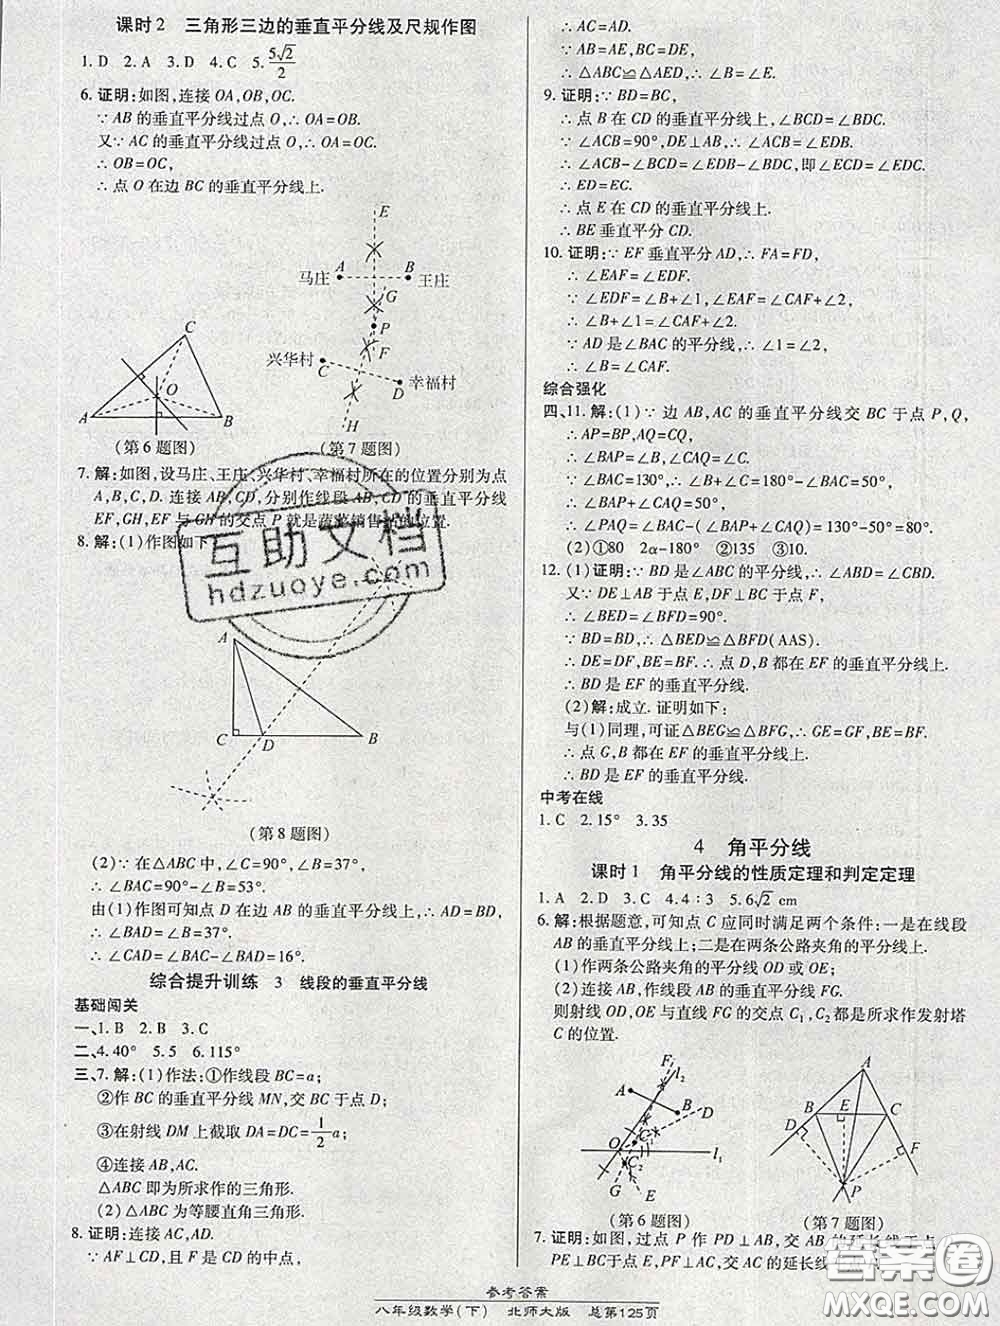 课时2 三角形三边的垂直平分线及尺规作图
1. D 2. A 3. D 4. C 5. 5√2/2
6. 证明:如图,连接 OA,OB,OC.
∵ AB 的垂直平分线过点 O,∴ OA=OB.
又∵ AC 的垂直平分线过点 O,∴ OA=OC.
∴ OB=OC,
∴ 点 O 在边 BC 的垂直平分线上.
E
马庄 A B 王庄
G
P
兴华村 C F
D 幸福村
H
C
O
A B
(第 6 题图) (第 7 题图)
7. 解:如图,设马庄、王庄、兴华村、幸福村所在的位置分别为点
A,B,C,D. 连接 AB,CD,分别作线段 AB,CD 的垂直平分线
EF,GH,EF 与 GH 的交点 P 就是蔬菜销售站的位置.
8. 解:(1)作图如下:
互助文档
hdzuoye.com
A
C D B
(第 8 题图)
(2)∵ 在△ABC 中,∠C=90°,∠B=37°,
∴ ∠BAC=90°-∠B=53°.
由(1)作图可知点 D 在边 AB 的垂直平分线上,∴ AD=BD,
∴ ∠BAD=∠B=37°.
∴ ∠CAD=∠BAC-∠BAD=16°.
综合提升训练 3 线段的垂直平分线
基础闯关
一、1. B 2. B 3. C
二、4. 40° 5. 5 6. 115°
三、7. 解:(1)作法:①作线段 BC=a;
②作 BC 的垂直平分线 MN,交 BC 于点 D;
③在射线 DM 上截取 DA=DC=1/2a;
④连接 AB,AC.
△ABC 即为所求作的三角形.
(2)△ABC 为等腰直角三角形.
8. 证明:连接 AC,AD.
∵ AF⊥CD,且 F 是 CD 的中点,
∴ AC=AD.
∵ AB=AE,BC=DE,
∴ △ABC≌△AED,∴ ∠B=∠E.
9. 证明:∵ BD=BC,
∴ 点 B 在 CD 的垂直平分线上,∠BCD=∠BDC.
∵ ∠ACB=90°,DE⊥AB,∴ ∠ACB=∠EDB.
∴ ∠ACB-∠BCD=∠EDB-∠BDC,即∠ECD=∠EDC.
∴ ED=EC.
∴ 点 E 在 CD 的垂直平分线上.
∴ BE 垂直平分 CD.
10. 证明:∵ EF 垂直平分 AD,∴ FA=FD,
∴ ∠EAF=∠EDF.
∵ ∠EDF=∠B+∠1,∠EAF=∠CAF+∠2,
∴ ∠B+∠1=∠CAF+∠2.
∵ AD 是∠BAC 的平分线,∴ ∠1=∠2,
∴ ∠B=∠CAF.
综合强化
四、11. 解:(1)∵ 边 AB,AC 的垂直平分线交 BC 于点 P,Q,
∴ AP=BP,AQ=CQ,
∴ ∠BAP=∠B,∠CAQ=∠C.
∵ ∠BAC=130°,∴ ∠B+∠C=180°-∠BAC=50°,
∴ ∠BAP+∠CAQ=50°,
∴ ∠PAQ=∠BAC-(∠BAP+∠CAQ)=130°-50°=80°.
(2)①80 2α-180° ②135 ③10.
12. (1)证明:∵ BD 是∠ABC 的平分线,∴ ∠ABD=∠CBD.
又∵ DE⊥AB 于点 E,DF⊥BC 于点 F,
∴ ∠BED=∠BFD=90°.
∵ BD=BD,∴ △BED≌△BFD(AAS).
∴ DE=DF,BE=BF.∴ 点 D,B 都在 EF 的垂直平分线上.
∴ BD 是 EF 的垂直平分线.
(2)解:成立. 证明如下:
与(1)同理,可证△BEG≌△BFG,∴ GE=GF,BE=BF.
∴ 点 G,B 都在 EF 的垂直平分线上.
∴ BD 是 EF 的垂直平分线.
中考在线
1. C 2. 15° 3. 35
4 角平分线
课时1 角平分线的性质定理和判定定理
1. A 2. D 3. C 4. 4∶3 5. 6√2 cm
6. 解:根据题意,可知点 C 应同时满足两个条件:一是在线段
AB 的垂直平分线上;二是在两条公路夹角的平分线上.
(1)作两条公路夹角的平分线 OD 或 OE;
(2)连接 AB,作线段 AB 的垂直平分线 FG.
则射线 OD,OE 与直线 FG 的交点 C₁,C₂都是所求作发射塔
C 的位置.
F l₂
A
B D
O C₁
C₂ l₁
G E
(第 6 题图)
A
B E C
D F
P
(第 7 题图)
7. 证明:如图,过点 P 作 PD⊥AB,交 AB 的延长线于点
PE⊥BC于点 E,PF⊥AC,交 AC 的延长线
参考答案
八年级数学(下) 北师大版 总第125页
答案圈
MXQE.COM